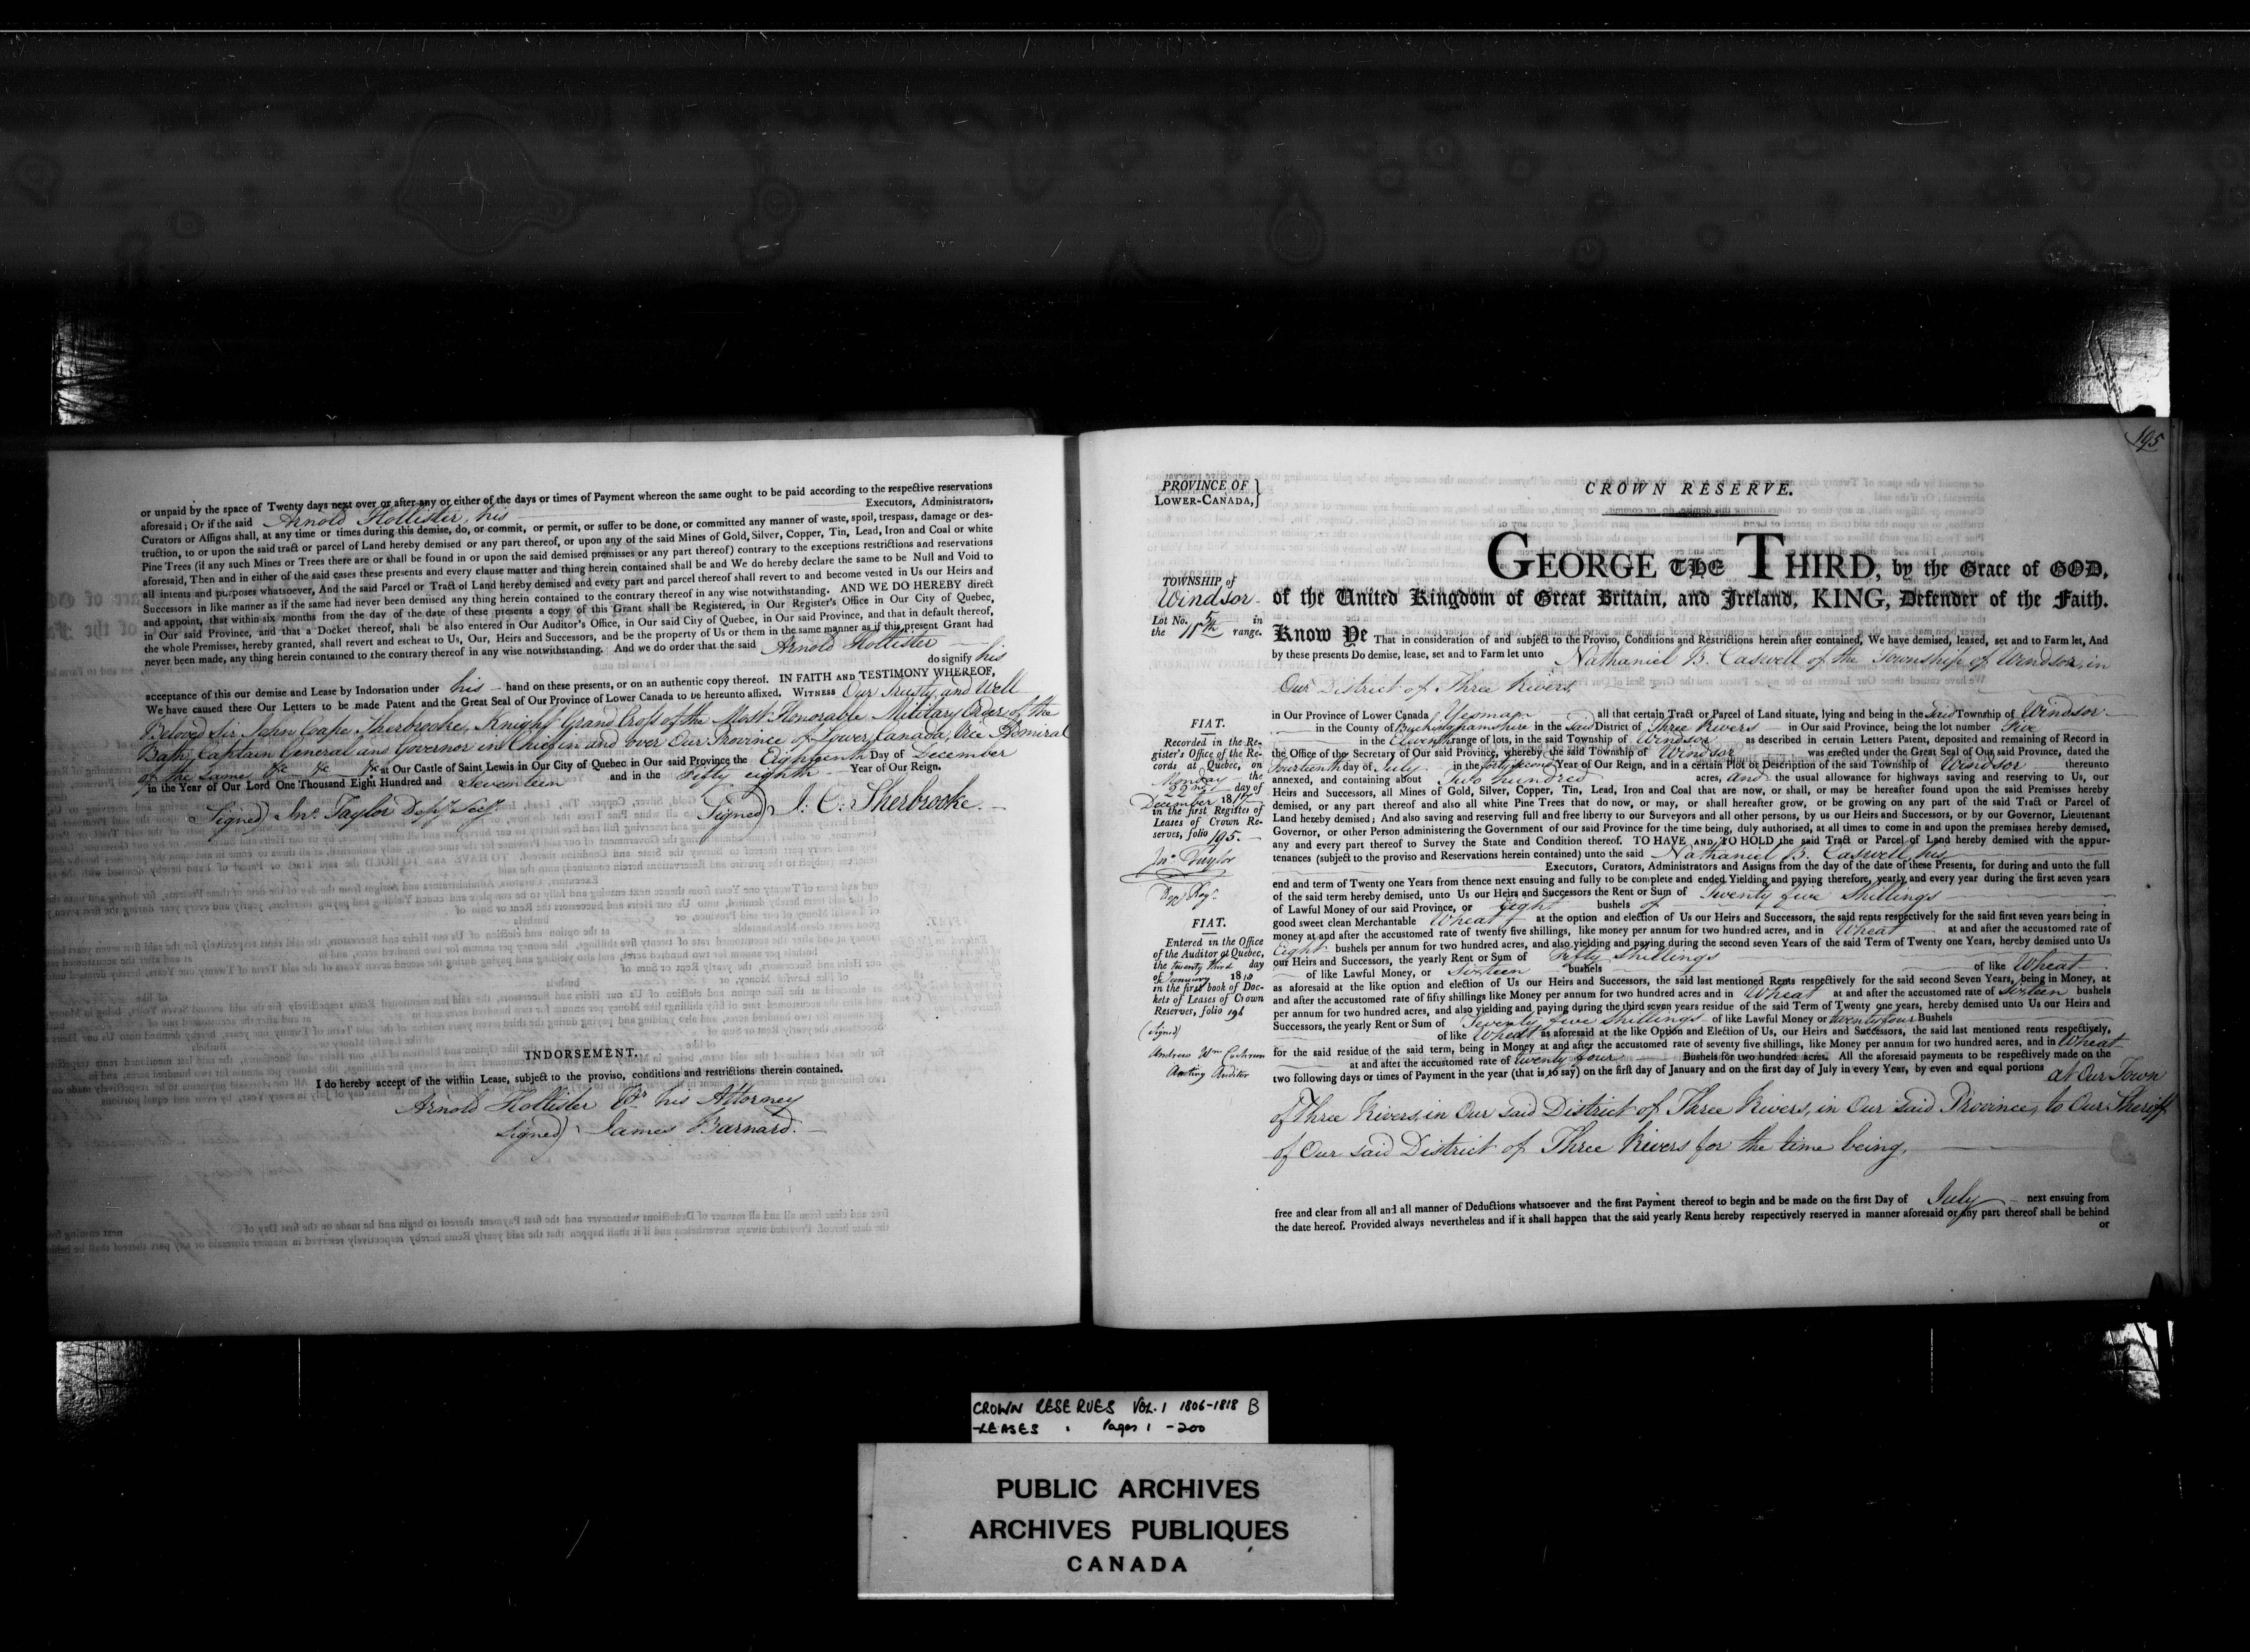 or unpaid by the space of Twenty days next over or after any or either of the days or times of Payment whereon the same ought to be paid according to the respective reservations
aforesaid ; Or if the said Arnold Hollister, his Executors, Administrators,
Curators or Assigns shall, at any time or times during this demise, do, or commit, or permit, or suffer to be done, or committed any manner of waste, spoil, trespass, damage or des-
truction, to or upon the said tract or parcel of Land hereby demised or any part thereof, or upon any of the said Mines of Gold, Silver, Copper, Tin, Lead, Iron and Coal or white
Pine Trees (if any such Mines or Trees there are or shall be found in or upon the said demised premises or any part thereof) contrary to the exceptions restrictions and reservations
aforesaid, Then and in either of the said cases these presents and every clause matter and thing herein contained shall be and We do hereby declare the same to be Null and Void to
all intents and purposes whatsoever, And the said Parcel or Tract of Land hereby demised and every part and parcel thereof shall revert to and become vested in Us our Heirs and
Successors in like manner as if the same had never been demised any thing herein contained to the contrary thereof in any wise notwithstanding. AND WE DO HEREBY direct
and appoint, that within six months from the day of the date of these presents a copy of this Grant shall be Registered, in Our Register's Office in Our City of Quebec,
in Our said Province, and that a Docket thereof, shall be also entered in Our Auditor's Office, in Our said City of Quebec, in Our said Province, and that in default thereof,
the whole Premises, hereby granted, shall revert and escheat to Us, Our, Heirs and Successors, and be the property of Us or them in the same manner as if this present Grant had
never been made, any thing herein contained to the contrary thereof in any wise notwithstanding. And we do order that the said Arnold Hollister
do signify his
acceptance of this our demise and Lease by Indorsation under his hand on these presents, or on an authentic copy thereof. IN FAITH AND TESTIMONY WHEREOF,
We have caused these Our Letters to be made Patent and the Great Seal of Our Province of Lower Canada to be hereunto affixed. WITNESS Our Trusty and Well
Beloved Sir John Coape Sherbrooke, Knight Grand Cross of the Most Honorable Military Order of the
Bath, Captain General and Governor in Chief in and over Our Province of Lower Canada, Vice Admiral
of the same &c &c &c at Our Castle of Saint Lewis in Our City of Quebec in Our said Province the Eighteenth Day of December
in the Year of Our Lord One Thousand Eight Hundred and Seventeen and in the Fifty eighth Year of Our Reign.
Signed) J: C: Sherbrooke.
Signed) Jno. Taylor Depy Secy
INDORSEMENT.
I do hereby accept of the within Lease, subject to the proviso, conditions and restrictions therein contained.
Arnold Hollister Pr his Attorney
Signed) James Barnard.
195
PROVINCE OF
LOWER-CANADA,
CROWN RESERVE.
TOWNSHIP of
Windsor
Lot No. 5 in
the 11th range.
GEORGE THE THIRD, by the Grace of GOD,
of the United Kingdom of Great Britain, and Ireland, KING, Defender of the Faith.
Know Ye That in consideration of and subject to the Proviso, Conditions and Restrictions herein after contained, We have demised, leased, set and to Farm let, And
by these presents Do demise, lease, set and to Farm let unto Nathaniel B. Caswell of the Township of Windsor, in
Our District of Three Rivers,
in Our Province of Lower Canada Yeoman all that certain Tract or Parcel of Land situate, lying and being in the Said Township of Windsor
in the County of Buckinghamshire in the Said District of Three Rivers in Our said Province, being the lot number Five
in the Eleventh range of lots, in the said Township of Windsor as described in certain Letters Patent, deposited and remaining of Record in
the Office of the Secretary of Our said Province, whereby the said Township of Windsor was erected under the Great Seal of Our said Province, dated the
Fourteenth day of July in the forty second Year of Our Reign, and in a certain Plot or Description of the said Township of Windsor thereunto
annexed, and containing about Two hundred acres, and the usual allowance for highways saving and reserving to Us, our
Heirs and Successors, all Mines of Gold, Silver, Copper, Tin, Lead, Iron and Coal that are now, or shall, or may be hereafter found upon the said Premises hereby
demised, or any part thereof and also all white Pine Trees that do now, or may, or shall hereafter grow, or be growing on any part of the said Tract or Parcel of
Land hereby demised ; And also saving and reserving full and free liberty to our Surveyors and all other persons, by us our Heirs and Successors, or by our Governor, Lieutenant
Governor, or other Person administering the Government of our said Province for the time being, duly authorised, at all times to come in and upon the premises hereby demised,
any and every part thereof to Survey the State and Condition thereof. TO HAVE AND TO HOLD the said Tract or Parcel of Land hereby demised with the appur-
tenances (subject to the proviso and Reservations herein contained) unto the said Nathaniel B. Caswell, his
Executors, Curators, Administrators and Assigns from the day of the date of these Presents, for during and unto the full
end and term of Twenty one Years from thence next ensuing and fully to be complete and ended Yielding and paying therefore, yearly and every year during the first seven years
of the said term hereby demised, unto Us our Heirs and Successors the Rent or Sum of Twenty five Shillings
of Lawful Money of our said Province, or Eight bushels of
good sweet clean Merchantable Wheat at the option and election of Us our Heirs and Successors, the said rents respectively for the said first seven years being in
money at and after the accustomed rate of twenty five shillings, like money per annum for two hundred acres, and in Wheat at and after the accustomed rate of
Eight bushels per annum for two hundred acres, and also yielding and paying during the second seven Years of the said Term of Twenty one Years, hereby demised unto Us
our Heirs and Successors, the yearly Rent or Sum of Fifty Shillings
of like Lawful Money, or Sixteen bushels of like Wheat
as aforesaid at the like option and election of Us our Heirs and Successors, the said last mentioned Rents respectively for the said second Seven Years, being in Money, at
and after the accustomed rate of fifty shillings like Money per annum for two hundred acres and in Wheat at and after the accustomed rate of Sixteen bushels
per annum for two hundred acres, and also yielding and paying during the third seven years residue of the said Term of Twenty one years, hereby demised unto Us our Heirs and
Successors, the yearly Rent or Sum of Seventy five Shillings of like Lawful Money or Twenty four Bushels
of like Wheat as aforesaid at the like Option and Election of Us, our Heirs and Successors, the said last mentioned rents respectively,
for the said residue of the said term, being in Money at and after the accustomed rate of seventy five shillings, like Money per annum for two hundred acres, and in Wheat
at and after the accustomed rate of twenty four Bushels for two hundred acres. All the aforesaid payments to be respectively made on the
two following days or times of Payment in the year (that is to say) on the first day of January and on the first day of July in every Year, by even and equal portions at Our Town
of Three Rivers, in Our said District of Three Rivers, in Our said Province, to Our Sheriff
of Our said District of Three Rivers for the time being,
free and clear from all and all manner of Deductions whatsoever and the first Payment thereof to begin and be made on the first Day of July next ensuing from
the date hereof. Provided always nevertheless and if it shall happen that the said yearly Rents hereby respectively reserved in manner aforesaid or any part thereof shall be behind
or
FIAT.
Recorded in the Re-
gister's Office of the Re-
cords at Quebec, on
Monday the
22nd day of
December 1817
in the first Register of
Leases of Crown Re-
serves, folio 195.
Jno. Taylor
Depy Regr.
FIAT.
Entered in the Office
of the Auditor at Quebec,
the twenty third day
of January 1818
in the first book of Doc-
kets of Leases of Crown
Reserves, folio 196
(signed)
Andrew Wm Cochran
Acting Auditor
CROWN RESERVES VOL. 1 1806-1818 B
-LEASES Pages 1 -200
PUBLIC ARCHIVES
ARCHIVES PUBLIQUES
CANADA